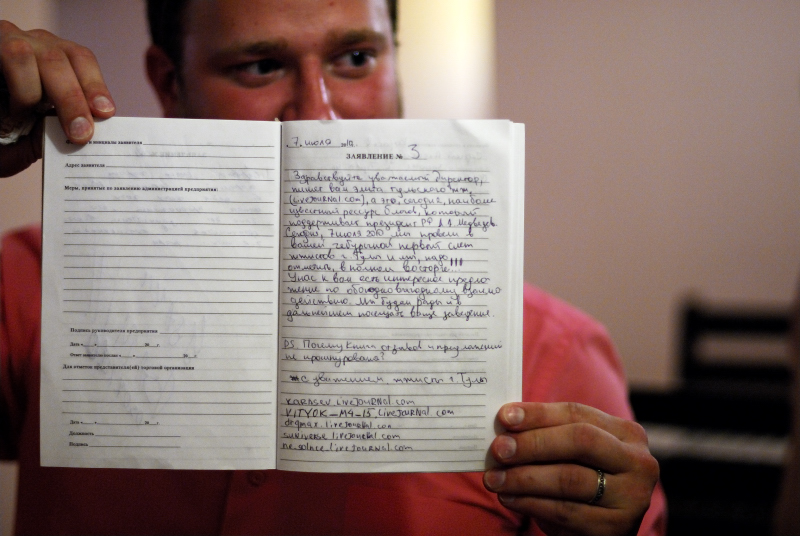 и инициалы заявителя
Адрес заявителя
Меры, принятые по заявлению администрацией предприятия:
Подпись руководителя предприятия
Дата « » 20 г.
Ответ заявителю послан « » 20 г.
Для отметок представителя(ей) торговой организации
Дата « » 20 г.
Должность
Подпись
7 июля
ЗАЯВЛЕНИЕ № 3
Здравствуйте уважаемый директор,
пишет вам элита тульского жж,
(LiveJournal.com), а это, сегодня, наиболее
известный ресурс блогов, который
поддерживает президент РФ Д.А. Медведев.
Сегодня, 7 июля 2010 мы провели в
вашей чебуречной первый слет
жжистов г. Тулы и мы, надо
отметить, в полном восторге!!!
У нас к вам есть интересное предло-
жение по обоюдно выгодному взаимо
действию. Мы будем рады и в
дальнейшем посещать ваше заведение.
PS. Почему книга отзывов и предложений
не прошнурована?
С уважением жжисты г. Тулы
karasev.livejournal.com
VITYOK_M4_15.livejournal.com
degmax.livejournal.com
suniverse.livejournal.com
ne_solnce.livejournal.com